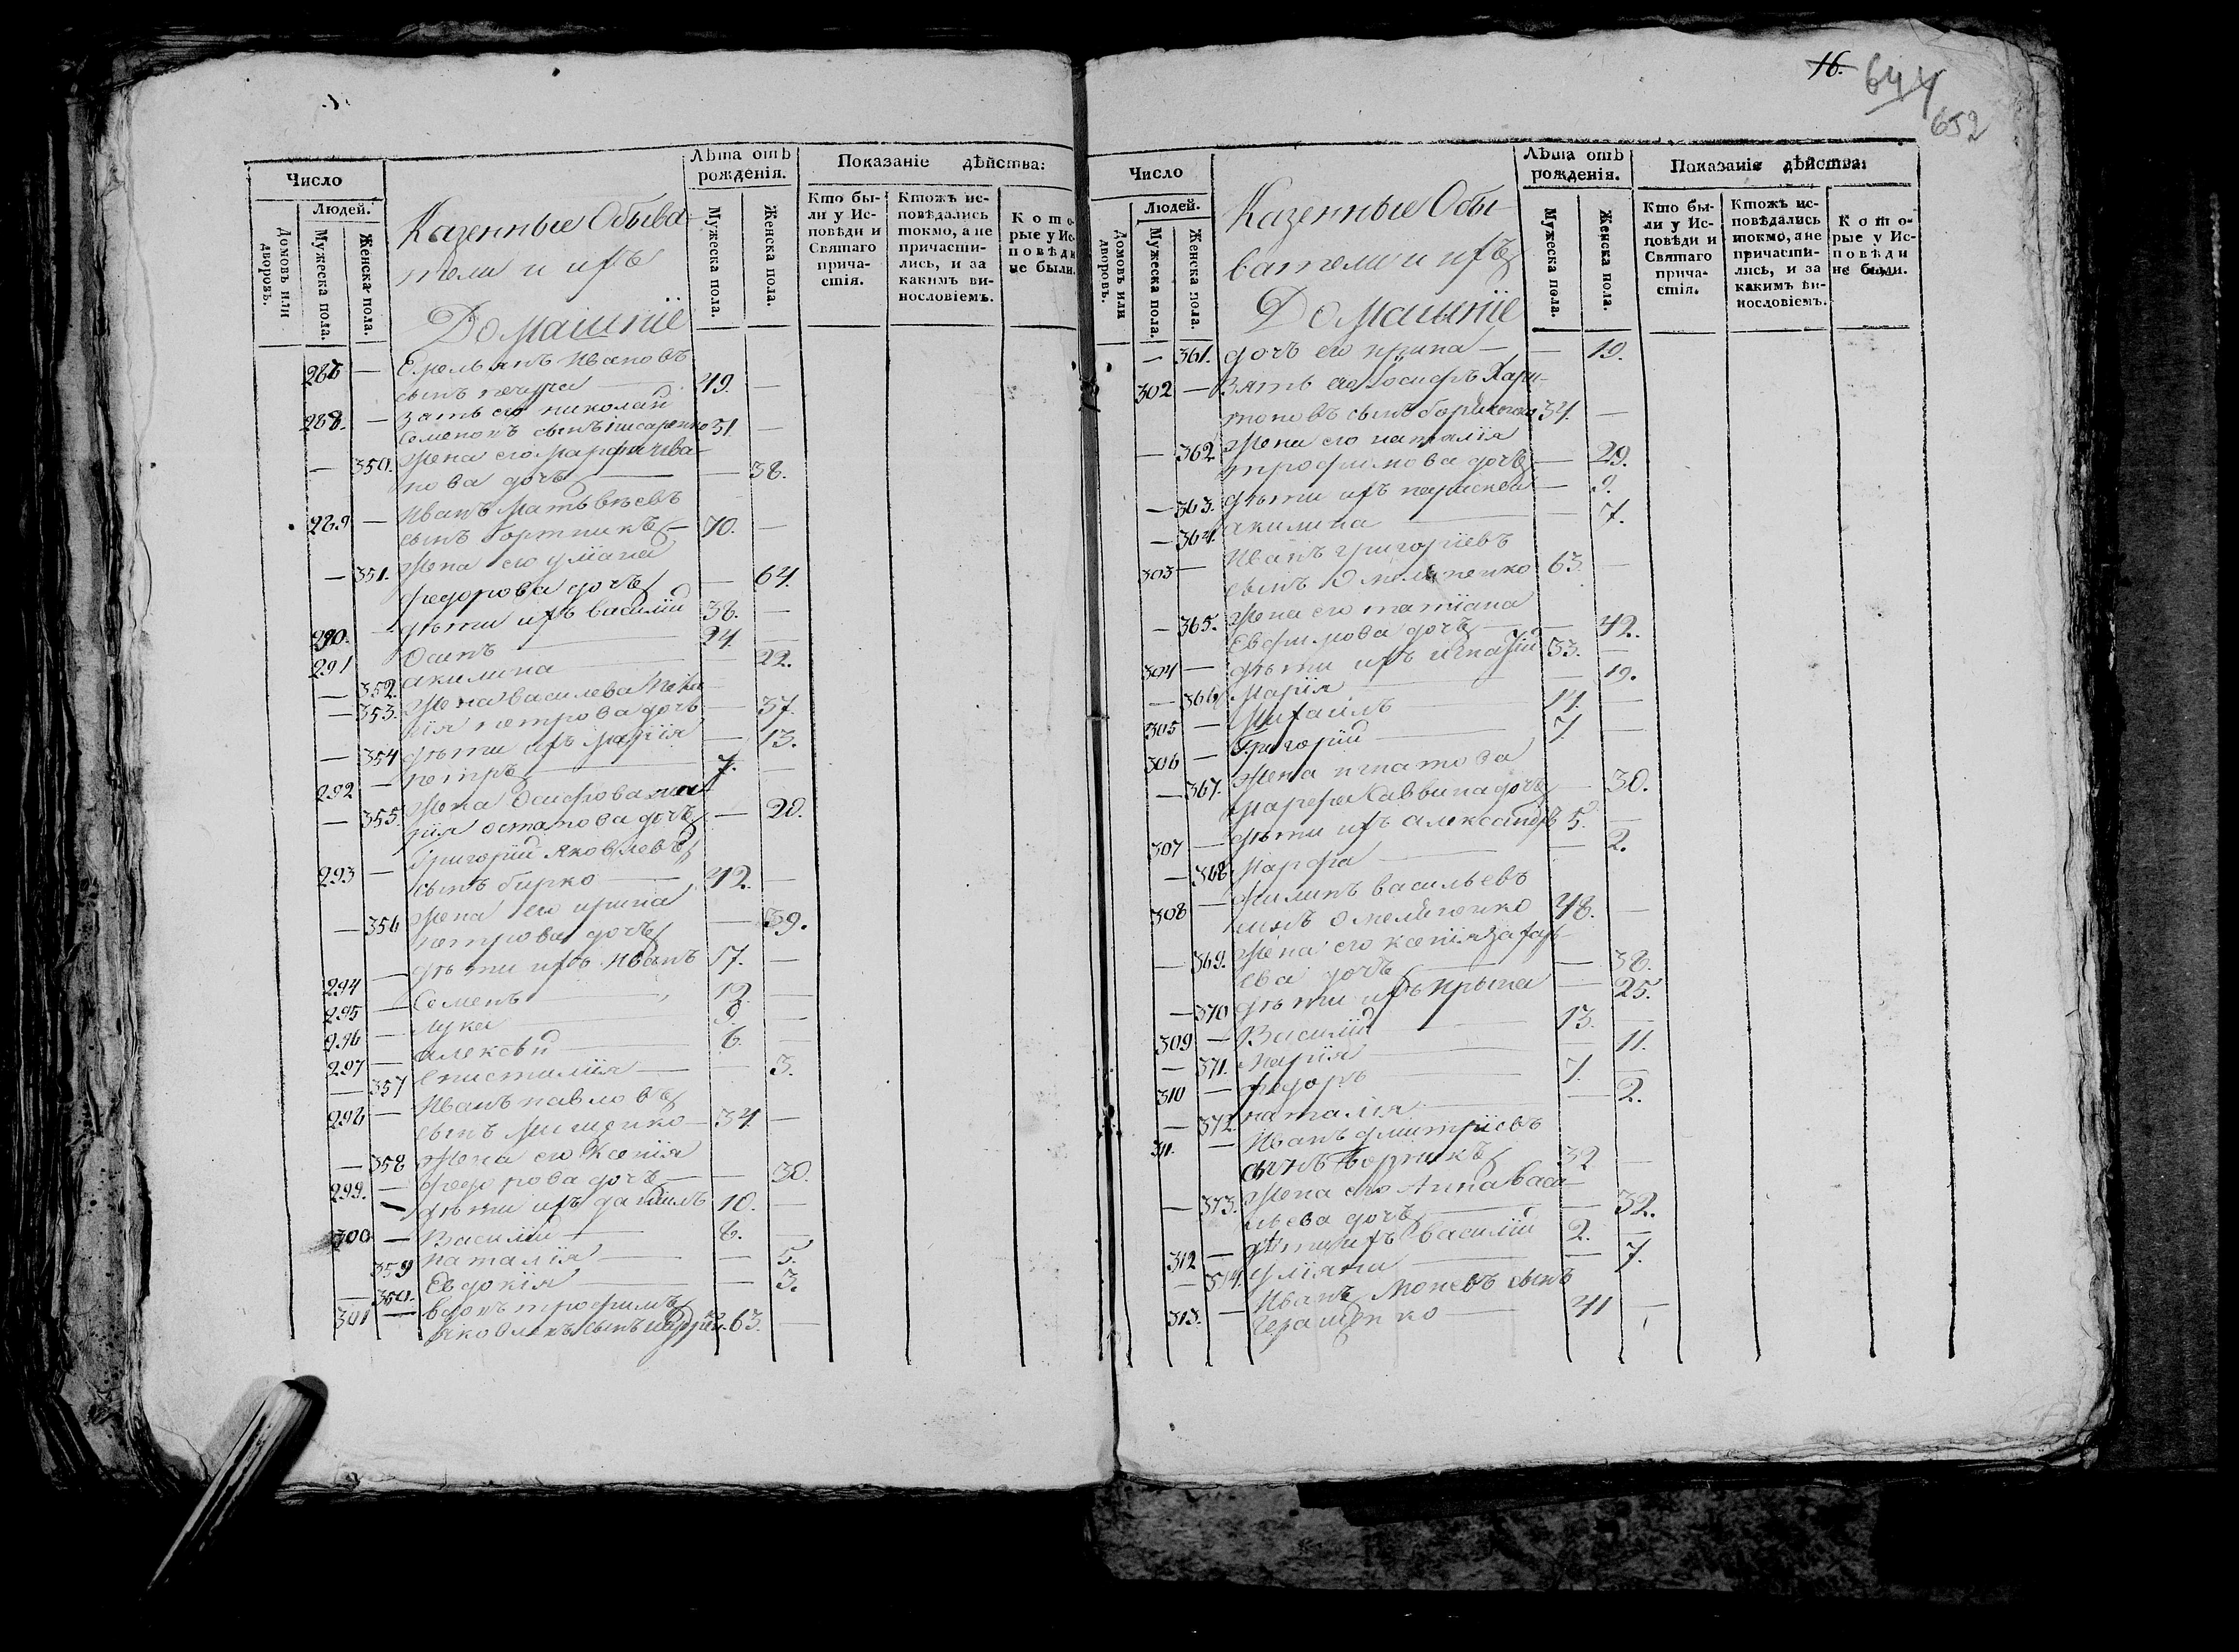 Число
Людей.
Домовъ или дворовъ.
Мужеска пола.
Женска пола.
Казенные Обыва
тели и ихъ
Домашнїе
Лѣта отъ рожденія.
Мужеска пола.
Женска пола.
Показаніе дѣйства:
Кто бы-
ли у Ис-
повѣди и
Святаго
прича-
стія.
Ктожъ ис-
повѣдались
токмо, а не
причасти-
лись, и за
какимъ ви-
нословіемъ.
Кото-
рые у Ис-
повѣди
не были.
Емельянъ Ивановъ
сынъ 49. —
288. — Зять его николай
Семеновъ сынъ писаренко 31. —
— 350. Жена его Марфа Ива-
нова дочь — 38.
289 — Иванъ Матвѣевъ
сынъ бортникъ — 70. —
— 351. Жена его улїана
федорова дочь — 64.
290. — дѣти ихъ василїй 38. —
291 Осипъ — 24. —
— 352. акилина — 22.
— 353. Жена василева
петрова дочь — 37.
— 354 дѣти ихъ Марїя — 13.
292 — петръ — 7. —
— 355. Жена Осифова
остапова дочь — 20.
293 — Григорїй Яковлевъ
сынъ бирко — 42. —
— 356 Жена его ирина
петрова дочь — 39.
294 — дѣти ихъ Иванъ 17. —
295 — Семенъ — 12. —
296 — лука — 9. —
297 — алексѣй — 6. —
— 357 — 3.
298 — Иванъ павловъ
сынъ Мищенко — 34 —
— 358 Жена его Ксенїя
федорова дочь — 30.
299. — дѣти ихъ данїилъ 10. —
300 — Василїй — 6. —
359 наталїя — 5.
— 360. Евдокїя — 3.
301 — вдовъ трофимъ
яковлевъ сынъ 63. —
16.
644
652
Число
Людей.
Домовъ или дворовъ.
Мужеска пола.
Женска пола.
Казенные Обы-
ватели и ихъ
Домашнїе
Лѣта отъ рожденія.
Мужеска пола.
Женска пола.
Показаніе дѣйства:
Кто бы-
ли у Ис-
повѣди и
Святаго
прича-
стія.
Ктожъ ис-
повѣдались
токмо, а не
причасти-
лись, и за
какимъ ви-
нословіемъ.
Кото-
рые у Ис-
повѣди
не были.
— 361. дочь его ирина — — 19.
302 — Зять его Іосифъ Хари-
тоновъ сынъ 34. —
— 362 Жена его наталїя
трофимова дочь — 29.
— 363. дѣти ихъ параскева — 9.
— 364. акилина — 7.
303 — Иванъ григорїевъ
сынъ Омельченко 63. —
— 365. Жена его татїана
Евфимова дочь — 42.
304 — дѣти ихъ игнатїй 33. —
— 366 Марїя — 19.
305 — Михаилъ — 14. —
306 — Григорїй — 7 —
— 367. Жена игнатова
Марфа Саввина дочь — 30.
307 — дѣти ихъ александръ 5. —
— 368 Марфа — 2.
308 — Филипъ васильевъ
сынъ омельченко 48. —
— 369. Жена его ксенїя захарь-
ева дочь — 38.
— 370 дѣти ихъ Ирына — 25.
309 — Василїй — 13. —
— 371. Марїя — 11.
310 — федоръ — 7. —
— 372. наталїя — 2.
311. — Иванъ дмитрїевъ
сынъ бортникъ 32 —
— 373. Жена его Анна васи-
льева дочь — 32.
312 — дѣти ихъ василїй 2. —
— 374. улїяна — 7.
313. — Иванъ сынъ
геращенко — 41 —